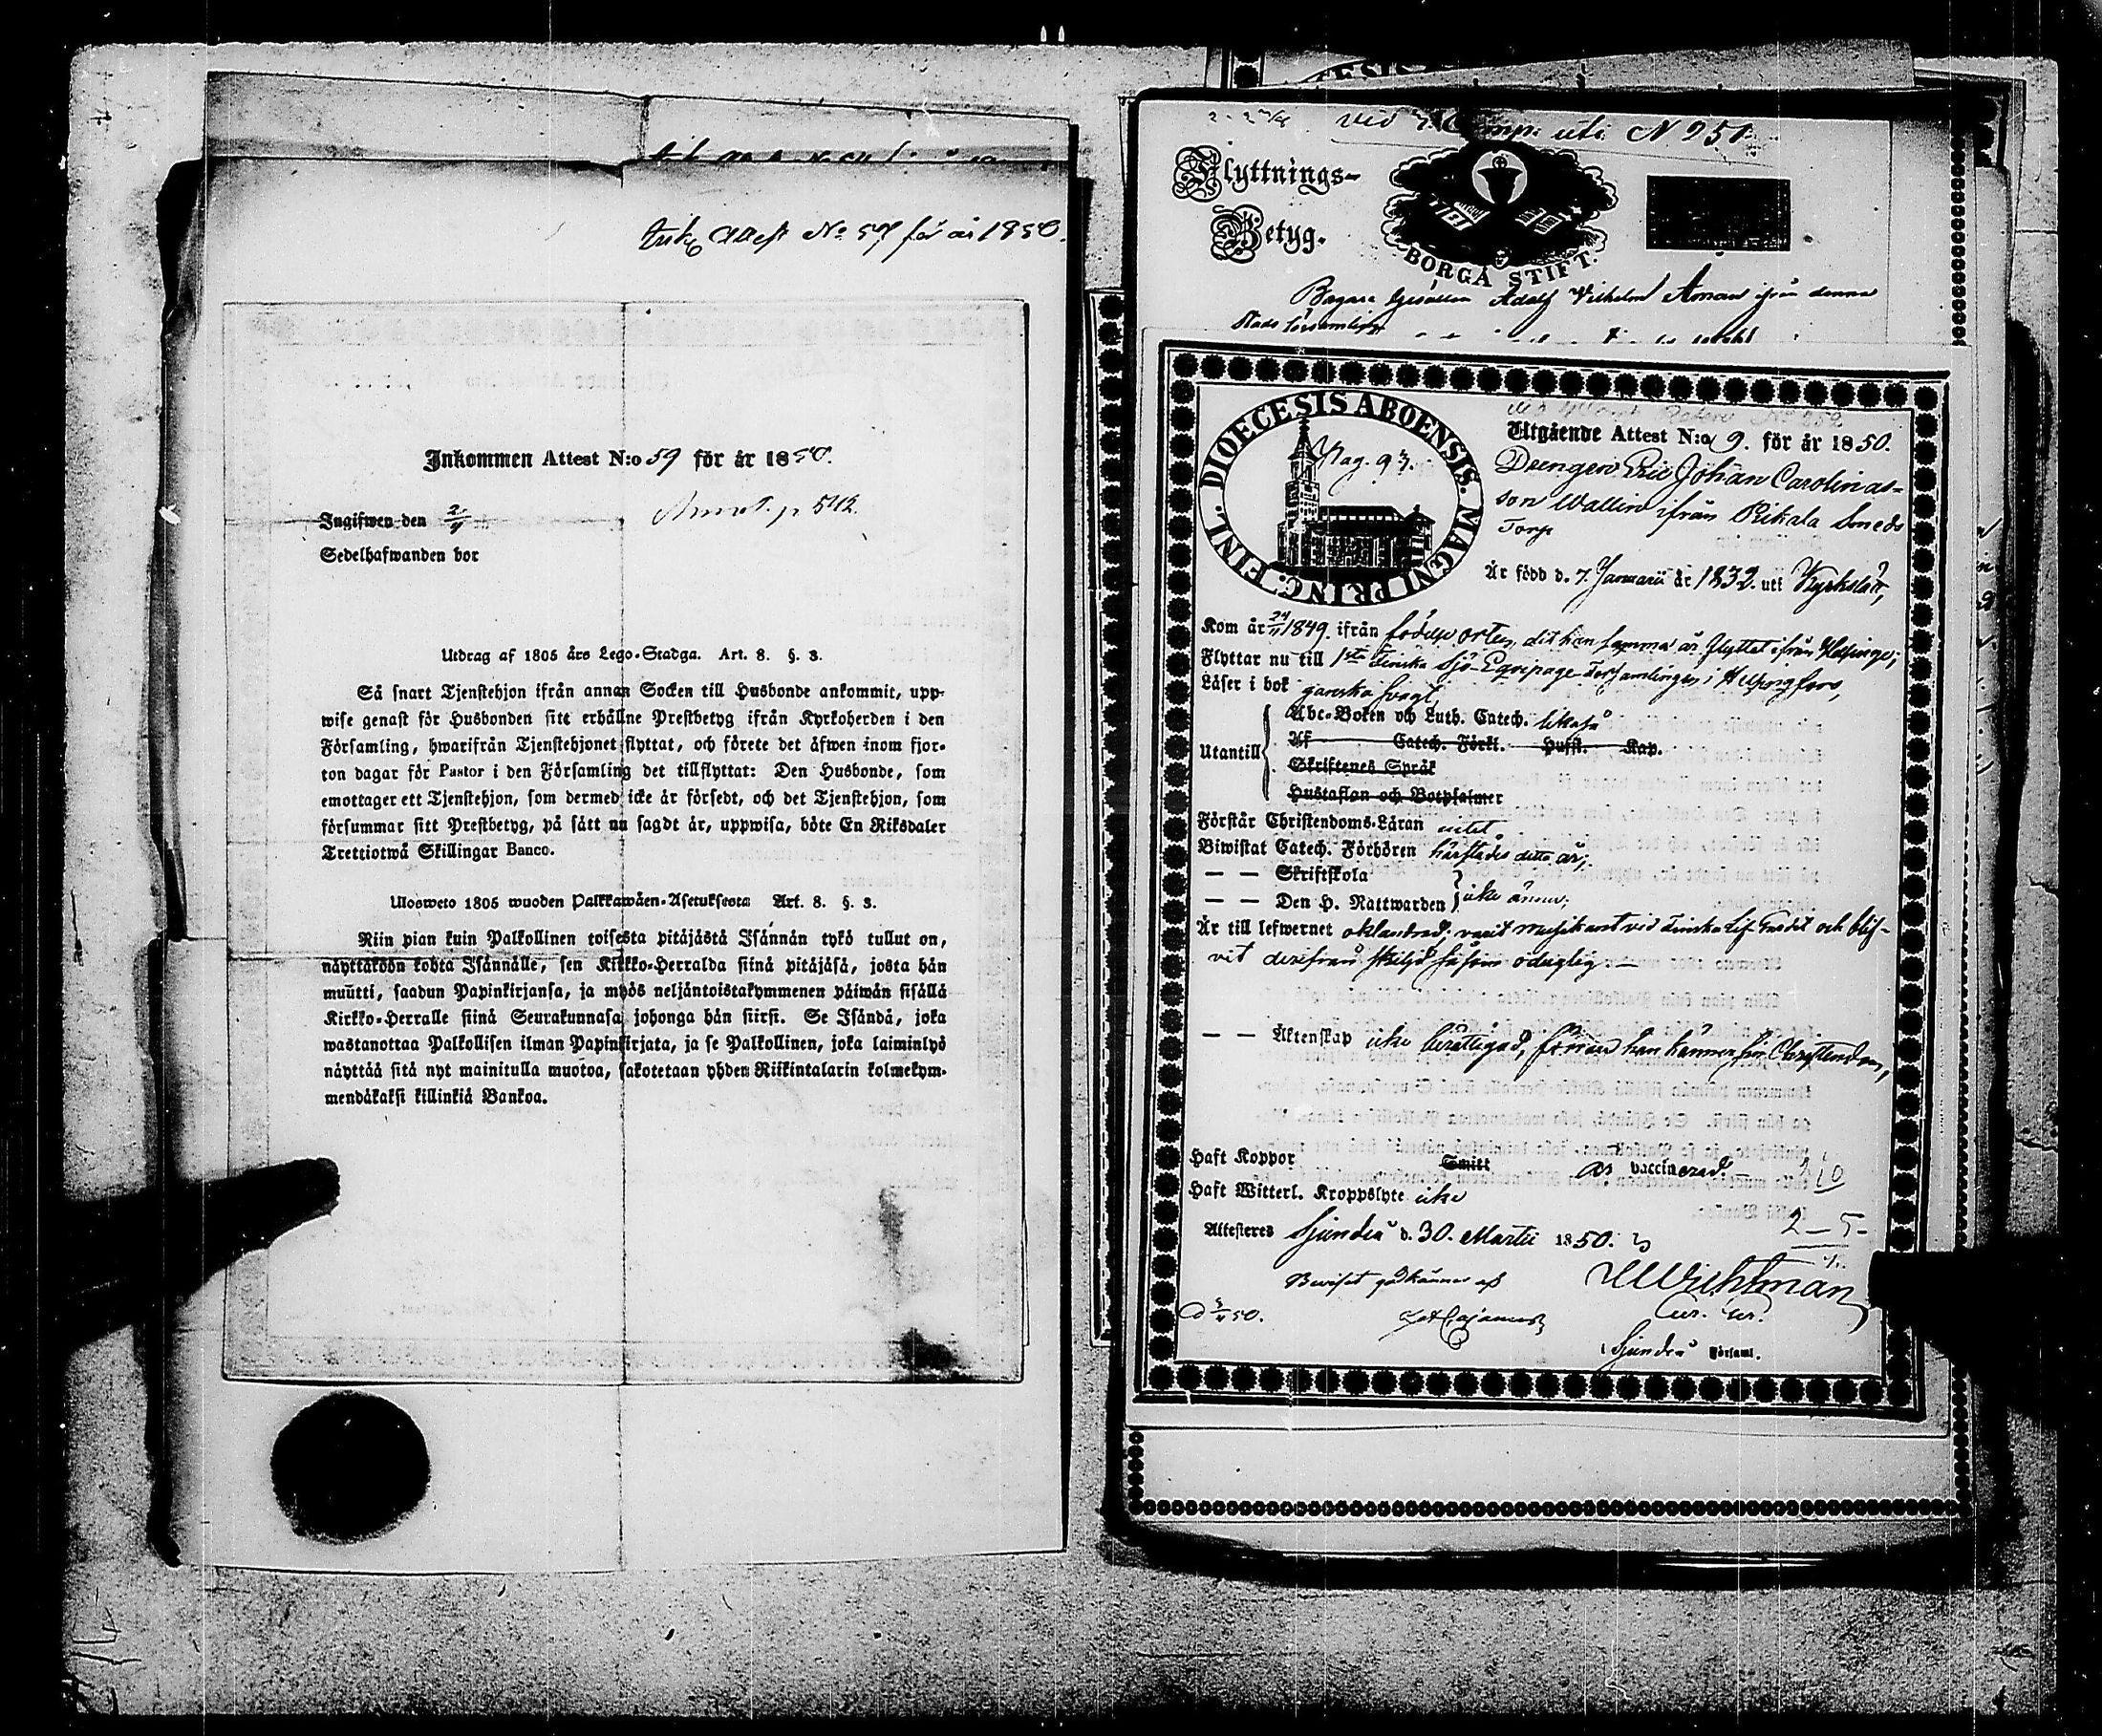 Ank. Attest No 57 för år 1850.
Inkommen Attest N:o 59 för år 1850.
Ingifwen den 2/4 Annot. p 542.
Sedelhafwanden bor
Utdrag af 1805 års Lego-Stadga. Art. 8. §. 3.
Så snart Tjenstehjon ifrån annan Socken till Husbonde ankommit, upp-
wise genast för Husbonden sitt erhållne Prestbetyg ifrån Kyrkoherden i den
Församling, hwarifrån Tjenstehjonet flyttat, och förete det äfwen inom fjor-
ton dagar för Pastor i den Församling det tillflyttat: Den Husbonde, som
emottager ett Tjenstehjon, som dermed icke är försedt, och det Tjenstehjon, som
försummar sitt Prestbetyg, på sätt nu sagdt är, uppwisa, böte En Riksdaler
Trettiotwå Skillingar Banco.
Ulosweto 1805 wuoden Palkkawäen-Asetuksesta Art. 8. §. 3.
Niin pian kuin Palkollinen toisesta pitäjästä Isännän tykö tullut on,
näyttäköön kohta Isännälle, sen Kirkko-Herralda siinä pitäjäsä, josta hän
muutti, saadun Papinkirjansa, ja myös neljäntoistakymmenen päiwän sisällä
Kirkko-Herralle siinä Seurakunnasa johonga hän siirsi. Se Isändä, joka
wastanottaa Palkollisen ilman Papinkirjata, ja se Palkollinen, joka laiminlyö
näyttää sitä nyt mainitulla muotoa, sakotetaan yhden Riikintalarin kolmekym-
mendäkaksi killinkiä Bankoa.
ved 7. Comp. uti N 251
Flyttnings-
Betyg.
BORGÅ STIFT.
Bagare Gesällen Adolf Wilhelm Åman ifrån denna
Stads församling
FINL. DIOECESIS ABOENSIS. MAGNI PRINC.
Pag. 93.
Utgående Attest N:o 9. för år 1850.
Drengen Eric Johan Carolinas-
son Wallin ifrån Pikala Smeds
Torp
Är född d. 7. Januarii år 1832. uti Kyrkslätt,
Kom år 24/11 1849. ifrån födelse orten, dit han samma år flyttat ifrån Helsinge;
Flyttar nu till 1sta Finska Sjö-Equipage Församlingen i Helsingfors,
Läser i bok ganska svagt,
Utantill
Abc-Boken och Luth. Catech. likaså
Af Catech. Förkl. Husst. Kap.
Skriftenes Språk
Hustaflan och Botpsalmer
Förstår Christendoms-Läran intet
Biwistat Catech. Förhören härstädes detta år;
— — Skriftskola
— — Den H. Nattwarden icke ännu;
Är till lefwernet oklandrad; varit musikant vid Finska Lif Gardet och blif-
vit derifrån skiljd såsom oduglig. —
— — Äktenskap icke berättigad, förrän han känner sin Christendom,
Haft Koppor Smitt är vaccinerad. —
Haft Witterl. Kroppslyte icke
Attesteres Sjundeå d. 30. Martii 1850.
2 – 5 –
Beviset godkännes af
Wichtman
Cur. Sur.
i Sjundeå Församl.